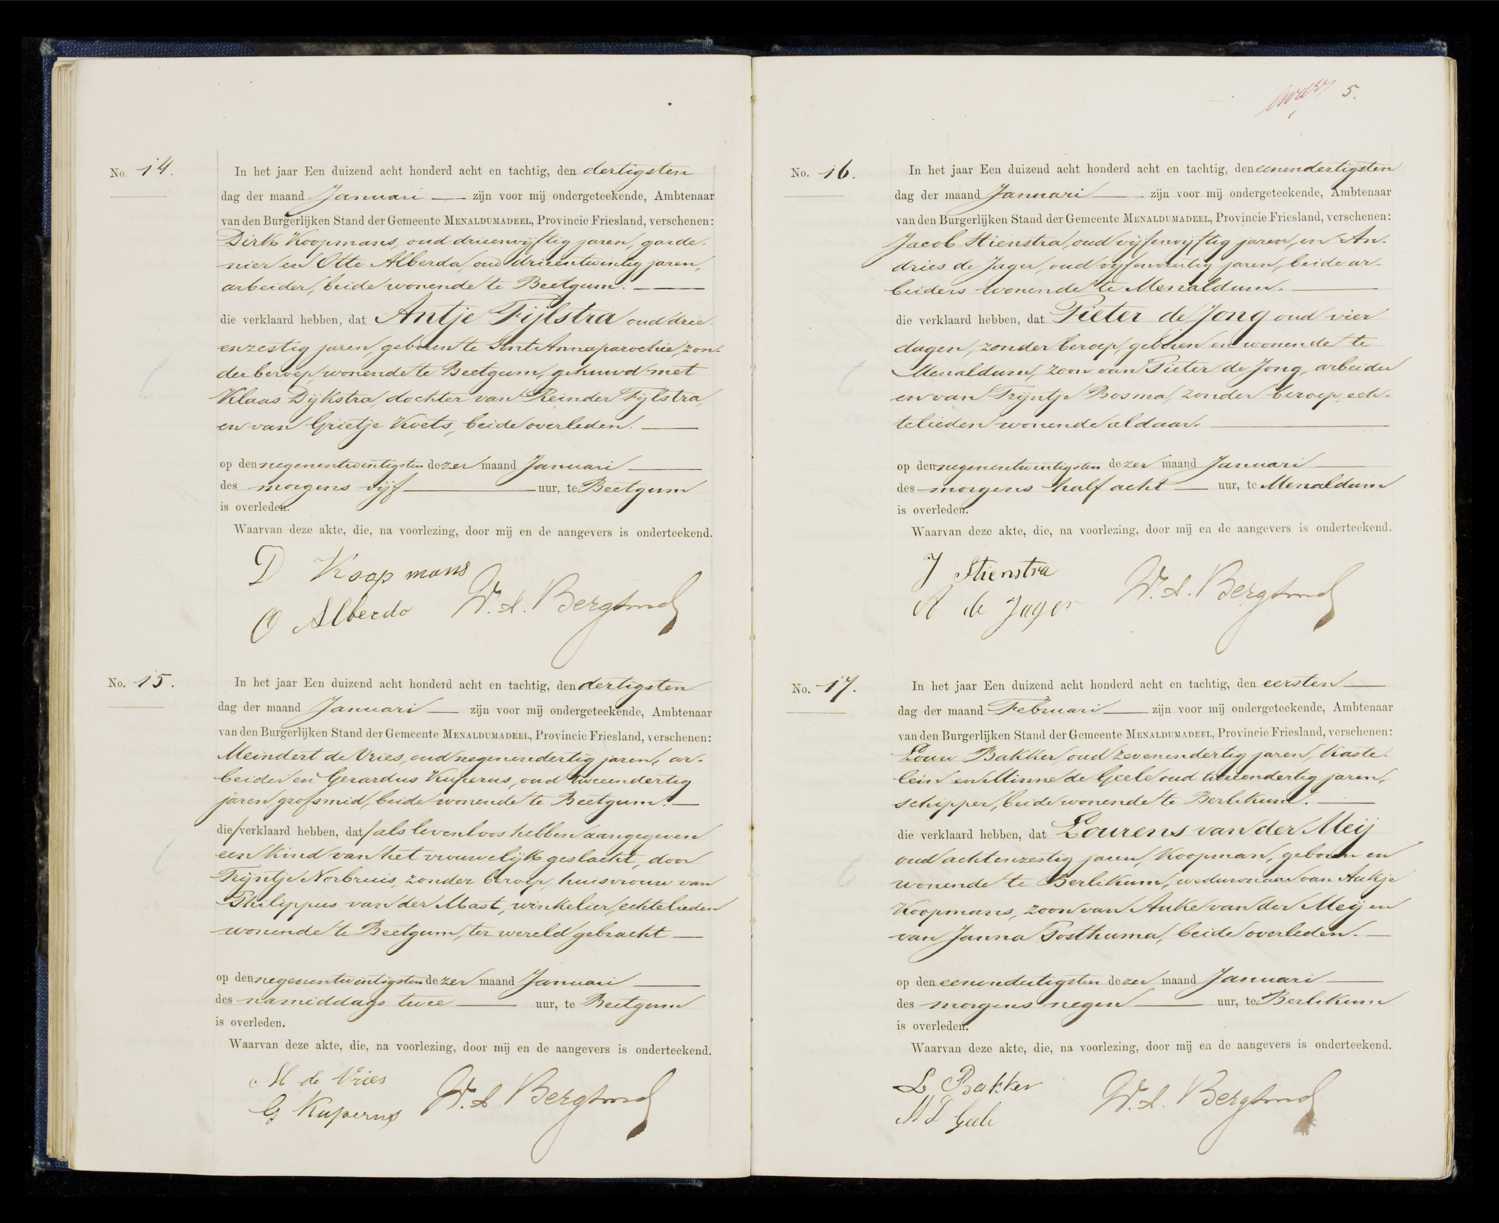 No. 14.
In het jaar Een duizend acht honderd acht en tachtig, den dertigsten
dag der maand Januari — zijn voor mij ondergeteekende, Ambtenaar
van den Burgerlijken Stand der Gemeente MENALDUMADEEL, Provincie Friesland, verschenen:
Dirk Koopmans, oud drieenvijftig jaren, garde-
nier en Otto Alberda, oud drieentwintig jaren,
arbeider, beide wonende te Beetgum. —
die verklaard hebben, dat Antje Fijlstra oud drie
enzestig jaren, geboren te Sint Annaparochie, zon-
der beroep, wonende te Beetgum, gehuwd met
Klaas Dijkstra, dochter van Reinder Fijlstra,
en van Grietje Koets, beide overleden. —
op den negenentwintigsten dezer maand Januari —
des morgens vijf — uur, te Beetgum
is overleden.
Waarvan deze akte, die, na voorlezing, door mij en de aangevers is onderteekend.
D Koopmans
O Alberda W. A. Bergsma
No. 15.
In het jaar Een duizend acht honderd acht en tachtig, den dertigsten
dag der maand Januari — zijn voor mij ondergeteekende, Ambtenaar
van den Burgerlijken Stand der Gemeente MENALDUMADEEL, Provincie Friesland, verschenen:
Meindert de Vries, oud negenendertig jaren, ar-
beider en Gerardus Kuperus, oud tweeendertig
jaren, grofsmid, beide wonende te Beetgum. —
die verklaard hebben, dat als levenloos hebben aangegeven
een kind van het vrouwelijk geslacht, door
Trijntje Norbruis, zonder beroep, huisvrouw van
Philippus van der Mast, winkelier, echtelieden
wonende te Beetgum, ter wereld gebracht —
op den negenentwintigsten dezer maand Januari —
des namiddags twee — uur, te Beetgum
is overleden.
Waarvan deze akte, die, na voorlezing, door mij en de aangevers is onderteekend.
M de Vries
G Kuperus W. A Bergsma
5.
No. 16.
In het jaar Een duizend acht honderd acht en tachtig, den eenendertigsten
dag der maand Januari — zijn voor mij ondergeteekende, Ambtenaar
van den Burgerlijken Stand der Gemeente MENALDUMADEEL, Provincie Friesland, verschenen:
Jacob Stienstra, oud vijfenvijftig jaren, en An-
dries de Jager, oud jaren, beide ar-
beiders wonende te Menaldum. —
die verklaard hebben, dat Pieter de Jong oud vier
dagen, zonder beroep, geboren en wonende te
Menaldum, zoon van Pieter de Jong, arbeider
en van Trijntje Bosma, zonder beroep, ech-
telieden wonende aldaar. —
op den negenentwintigsten dezer maand Januari —
des morgens half acht — uur, te Menaldum
is overleden.
Waarvan deze akte, die, na voorlezing, door mij en de aangevers is onderteekend.
J Stienstra
A de Jager W. A. Bergsma
No. 17.
In het jaar Een duizend acht honderd acht en tachtig, den eersten —
dag der maand Februari — zijn voor mij ondergeteekende, Ambtenaar
van den Burgerlijken Stand der Gemeente MENALDUMADEEL, Provincie Friesland, verschenen:
Louw Bakker, oud zevenendertig jaren, kaste-
lein en Minne de Geele oud tweeendertig jaren,
schipper, beide wonende te Berlikum. —
die verklaard hebben, dat Lourens van der Meij
oud achtenzestig jaren, koopman, geboren en
wonende te Berlikum, weduwnaar van Aukje
Koopmans, zoon van Auke van der Meij en
van Janna Posthuma, beide overleden. —
op den eenendertigsten dezer maand Januari —
des morgens negen — uur, te Berlikum
is overleden.
Waarvan deze akte, die, na voorlezing, door mij en de aangevers is onderteekend.
L Bakker
Geele W. A. Bergsma